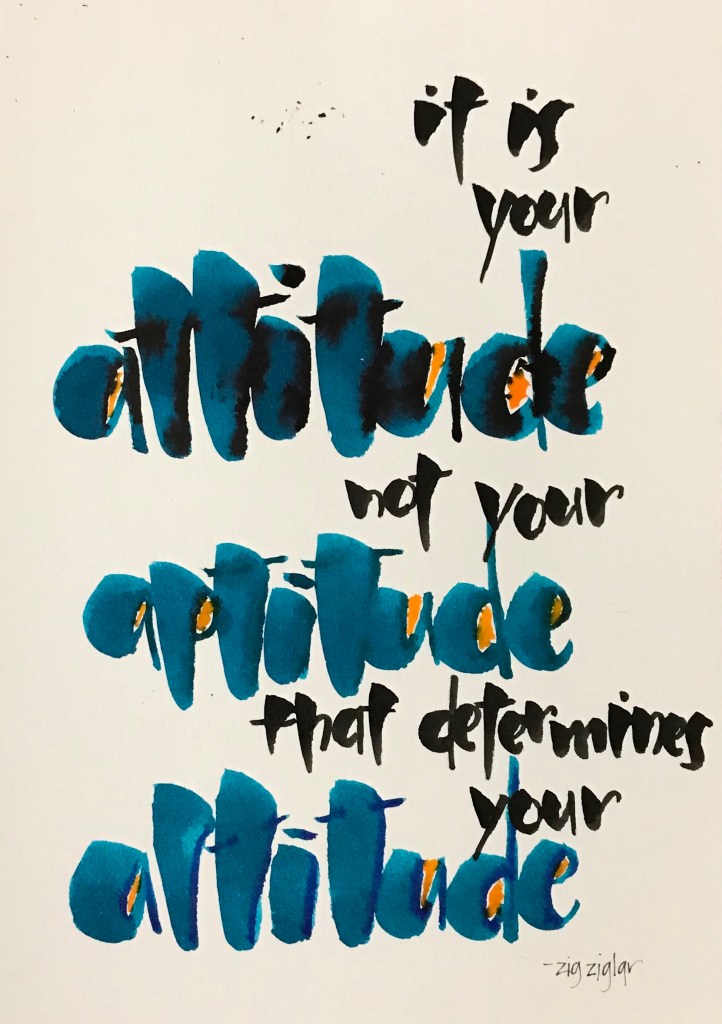 it is
your
attitude
not your
aptitude
that determines
your
altitude
-zig ziglar